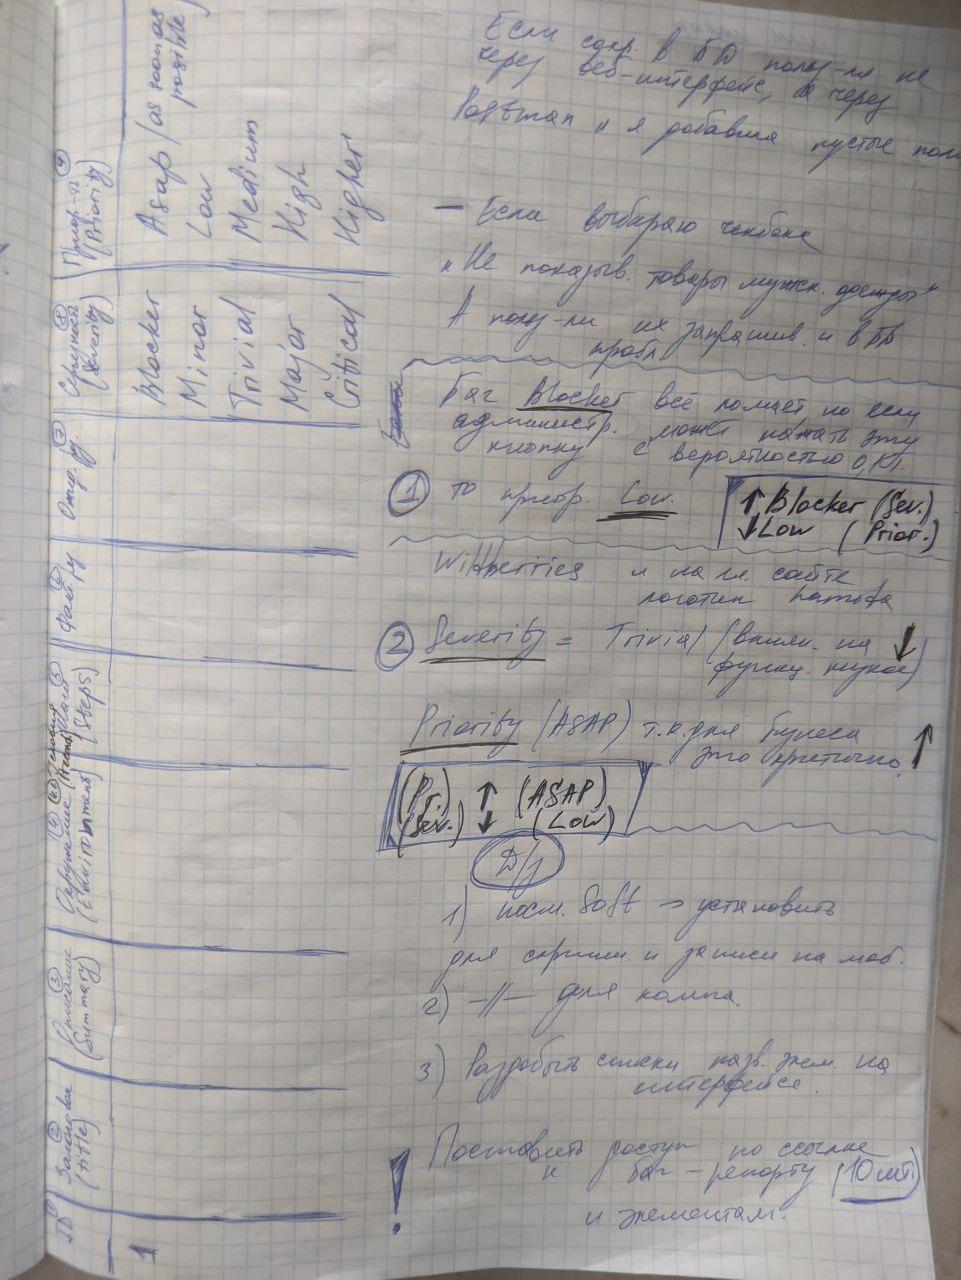 ID ①
② Заголовок
(title)
③ Описание
(Summary)
④ Окружение
(Environment)
⑤ Шаги
(Steps)
⑥ Факт. ру
⑦ Ожид. ру
⑧ Серьезность
(Severity)
⑨ Приор-т
(Priority)
1
Blocker
Minor
Trivial
Major
Critical
Asap (as soon as
posible)
Low
Medium
High
Higher
Если сохр. в БД польз-ля не
через веб-интерфейс, а через
Postman и я добавила пустые поля
— Если выбираю чекбокс
"Не показыв. товары мужск. одежды"
А польз-ли их запрашив. и в БД
пробл.
Баг Blocker всё ломает, но если
администр. может нажать эту
кнопку с вероятностью
① то приор. Low.
↑ Blocker (Sev.)
↓ Low (Prior.)
Wildberries и на гл. сайте
логотип
② Severity = Trivial (влиян. на ↓
функц. )
Priority (ASAP) т.к. для бизнеса
это критично. ↑
(Pr.) ↑ (ASAP)
(Sev.) ↓ (Low)
Д/з
1) посм. Soft → установить
для скриш. и записи на моб.
2) —//— для компа.
3) Раздобыть списки назв. элем. на
интерфейсе.
! Поставить доступ по ссылке
к баг-репорту (10 шт.)
и элементам.